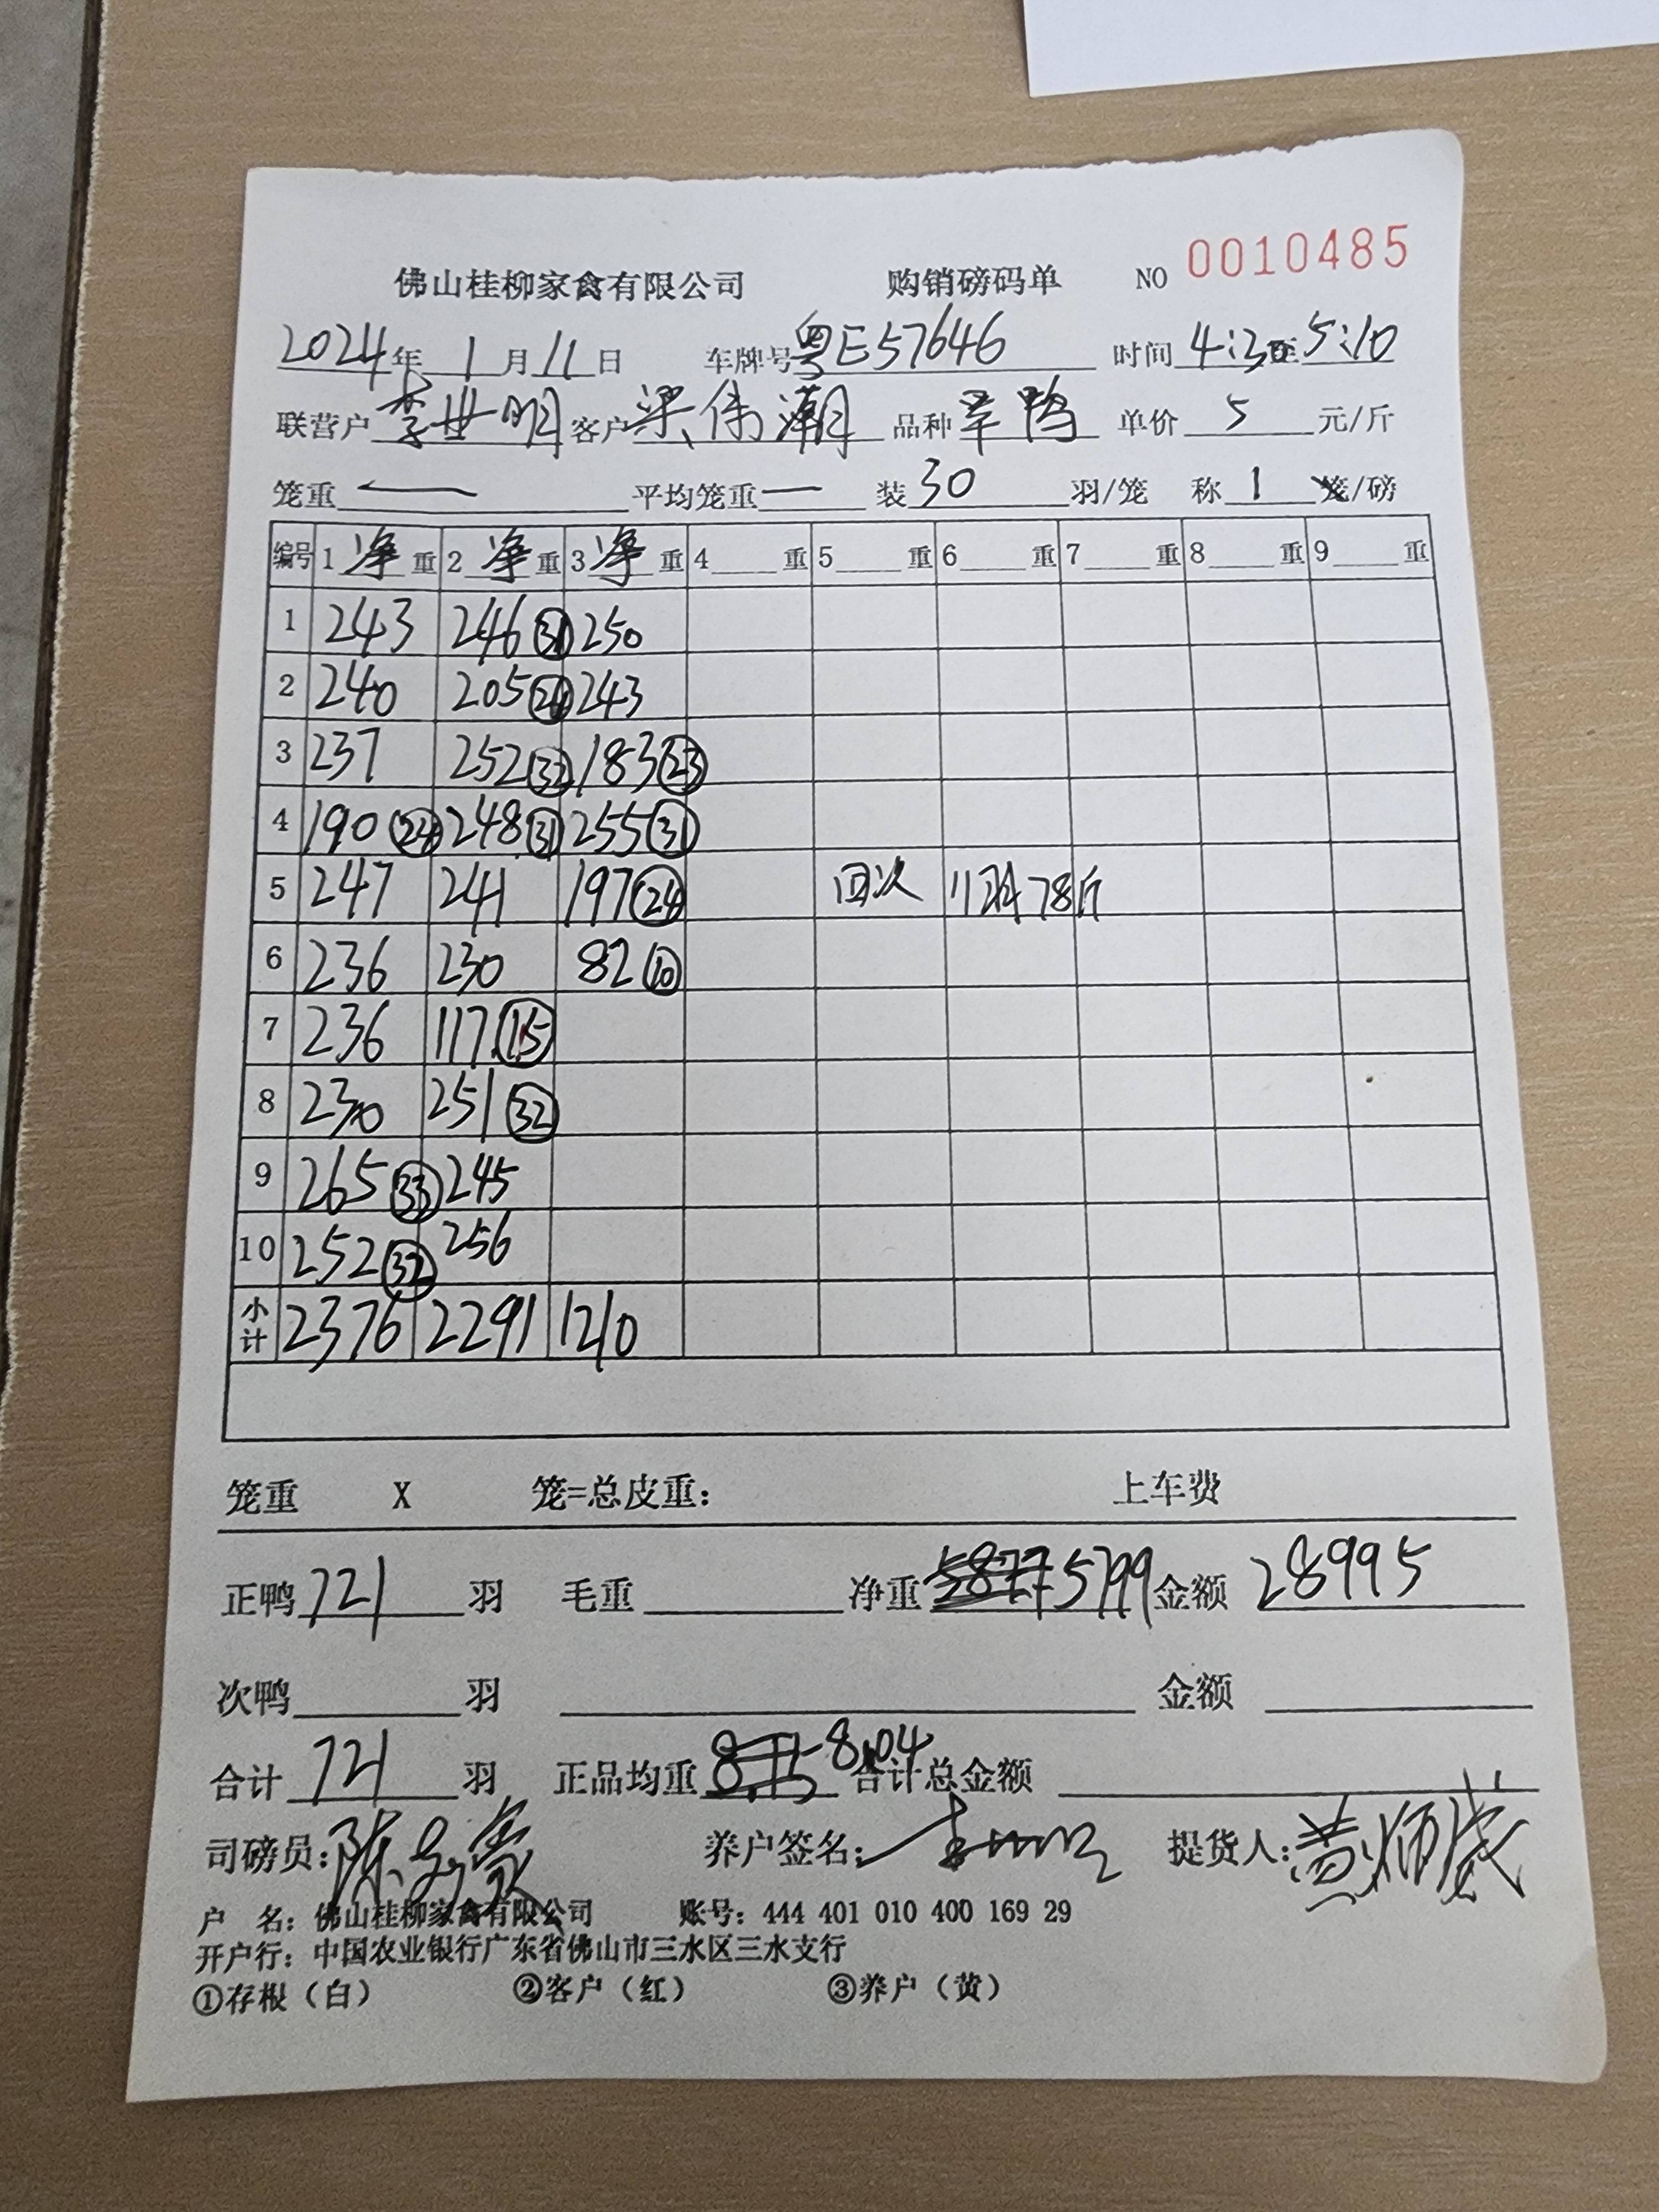 佛山桂柳家禽有限公司 购销磅码单 NO 0010485
2024年1月11日 车牌号粤E57646 时间4:30至5:10
联营户李世明 客户梁伟潮 品种旱鸭 单价5元/斤
笼重一 平均笼重一 装30羽/笼 称1笼/磅
编号 1净重 2净重 3净重 4重 5重 6重 7重 8重 9重
1 243 246 31 250
2 240 205 26 243
3 237 252 32 183 23
4 190 24 248 31 255 31
5 247 241 197 24 回次 11羽78斤
6 236 230 82 10
7 236 117 15
8 230 251 32
9 265 33 245
10 252 32 256
小计 2376 2291 1210
笼重 X 笼=总皮重: 上车费
正鸭721羽 毛重 净重5877 5799 金额28995
次鸭 羽 金额
合计721羽 正品均重8.15 8.04 合计总金额
司磅员:陈 养户签名: 提货人:黄
户 名: 佛山桂柳家禽有限公司 账号: 444 401 010 400 169 29
开户行: 中国农业银行广东省佛山市三水区三水支行
①存根（白） ②客户（红） ③养户（黄）